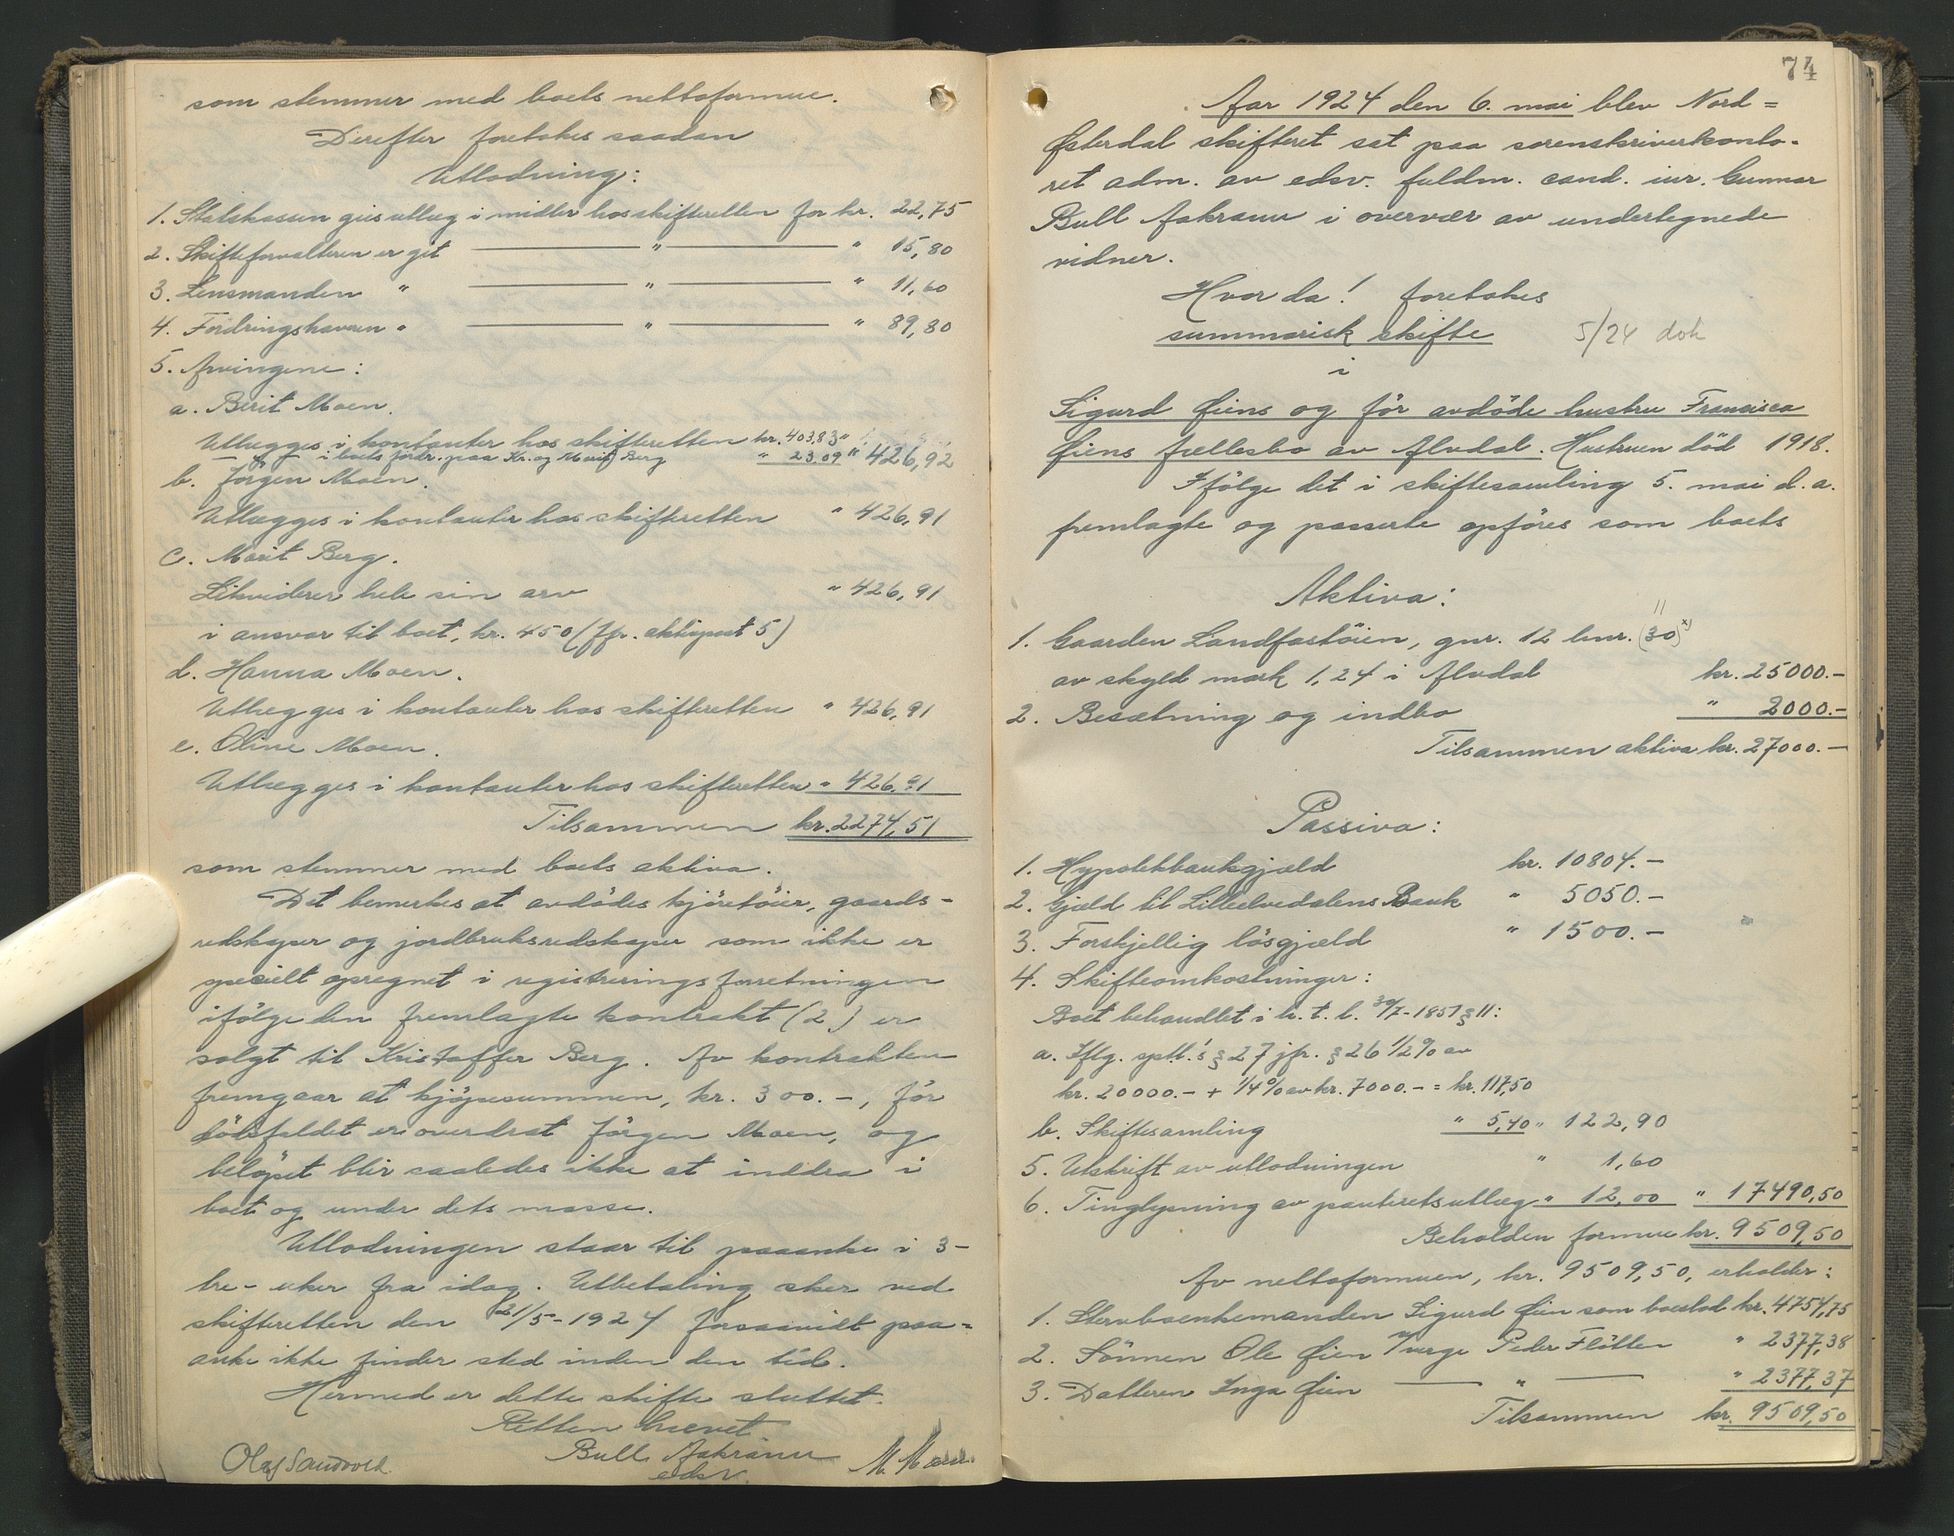 som stemmer med boets nettoformue.
Derefter foretokes saadan
Utlodning:
1. Statskassen gis utlæg i midler hos skifteretten for kr. 22,75
2. Skifteforvalteren er git — " — " 15,80
3. Lensmanden " — " — " 11,60
4. Fordringshaveren " — " — " 89,80
5. Arvingene:
a. Berit Moen.
Utlægges i kontanter hos skifteretten kr. 403,83
— " — i boets fordr. paa Kr. og Marit Berg " 23,09 " 426,92
b. Jörgen Moen.
Utlægges i kontanter hos skifteretten " 426,91
c. Marit Berg.
Likviderer hele sin arv " 426,91
i ansvar til boet, kr. 450 (jfr. aktivpost 5)
d. Hanna Moen.
Utlægges i kontanter hos skifteretten " 426,91
e. Oline Moen.
Utlægges i kontanter hos skifteretten " 426,91
Tilsammen kr. 2274,51
som stemmer med boets aktiva.
Det bemerkes at avdödes kjöretöier, gaards-
redskaper og jordbruksredskaper som ikke er
specielt opregnet i registreringsforretningen
ifölge den fremlagte kontrakt (2) er
solgt til Kristoffer Berg. Av kontrakten
fremgaar at kjöpesummen, kr. 300.-, för
dödsfaldet er overdrat Jörgen Moen, og
belöpet blir saaledes ikke at inddra i
boet og under dets masse.
Utlodningen staar til paaanke i 3-
tre- uker fra idag. Utbetaling sker ved
skifteretten den 21/5-1924 forsaavidt paa=
anke ikke finder sted inden den tid.
Hermed er dette skifte sluttet.
Retten hævet
Bull Aakrann
edsv.
Olaf Sandvold
M. Moen.
74
Aar 1924 den 6. mai blev Nord=
Østerdal skifteret sat paa sorenskriverkonto-
ret adm. av edsv. fuldm. cand. iur. Gunnar
Bull Aakrann i overvær av undertegnede
vidner.
Hvor da! foretokes
summarisk skifte 5/24 dok
i
Sigurd Øiens og för avdöde hustru Francisca
Øiens fællesbo av Alvdal. Hustruen död 1918.
Ifölge det i skiftesamling 5. mai d.a.
fremlagte og passerte opföres som boets
Aktiva:
11
1. Gaarden Landfastöien, gnr. 12 bnr. (30) x)
av skyld mark 1,24 i Alvdal kr. 25000.-
2. Besætning og indbo " 2000.-
Tilsammen aktiva kr. 27000.-
Passiva:
1. Hypotekbankgjæld kr. 10804.-
2. Gjæld til Lilleelvedalens Bank " 5050.-
3. Forskjellig lösgjæld " 1500.-
4. Skifteomkostninger:
Boet behandlet i h. t. l. 30/7-1851 § 11:
a. Iflg. sptl.'s § 27 jfr. § 26 1/2 % av
kr. 20000.- + 1/4 % av kr. 7000.- = kr. 117,50
b. Skiftesamling " 5,40 " 122,90
5. Utskrift av utlodningen " 1,60
6. Tinglysning av panteretsutlæg " 12,00 " 17490,50
Beholden formue kr. 9509,50
Av nettoformuen, kr. 9509,50, erholder:
1. Stervboenkemanden Sigurd Øien som boeslod kr. 4754,75
2. Sönnen Ole Øien v/verge Peder Flötten " 2377,38
3. Datteren Inga Øien — " — " 2377,37
Tilsammen kr. 9509,50